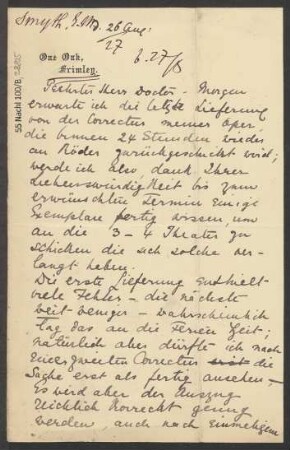 Smyth, E. M. 26 Aug.
27
b. 27/8
55 Nachl 100/B,
One Oak,
Frimley.
Herr Doctor – Morgen
erwarte ich die letzte Lieferung
von der Correctur meiner Oper,
die binnen 24 Stunden wieder
an Röder zurückgeschickt wird;
werde ich also, dank Ihrer
Liebenswürdigkeit bis zum
erwünschten Termin einige
Exemplare fertig wissen, um
an die 3–4 Theater zu
schicken die sich solche ver-
langt haben.
Die erste Lieferung enthielt
viele Fehler – die nächste
weit weniger – wahrscheinlich
lag das an die Ferien Zeit;
natürlich aber dürfte ich nach
einer zweiten Correctur die
Sache erst als fertig ansehen –
Es wird aber der Auszug
reichlich korrect genug
werden auch nach einmaligem